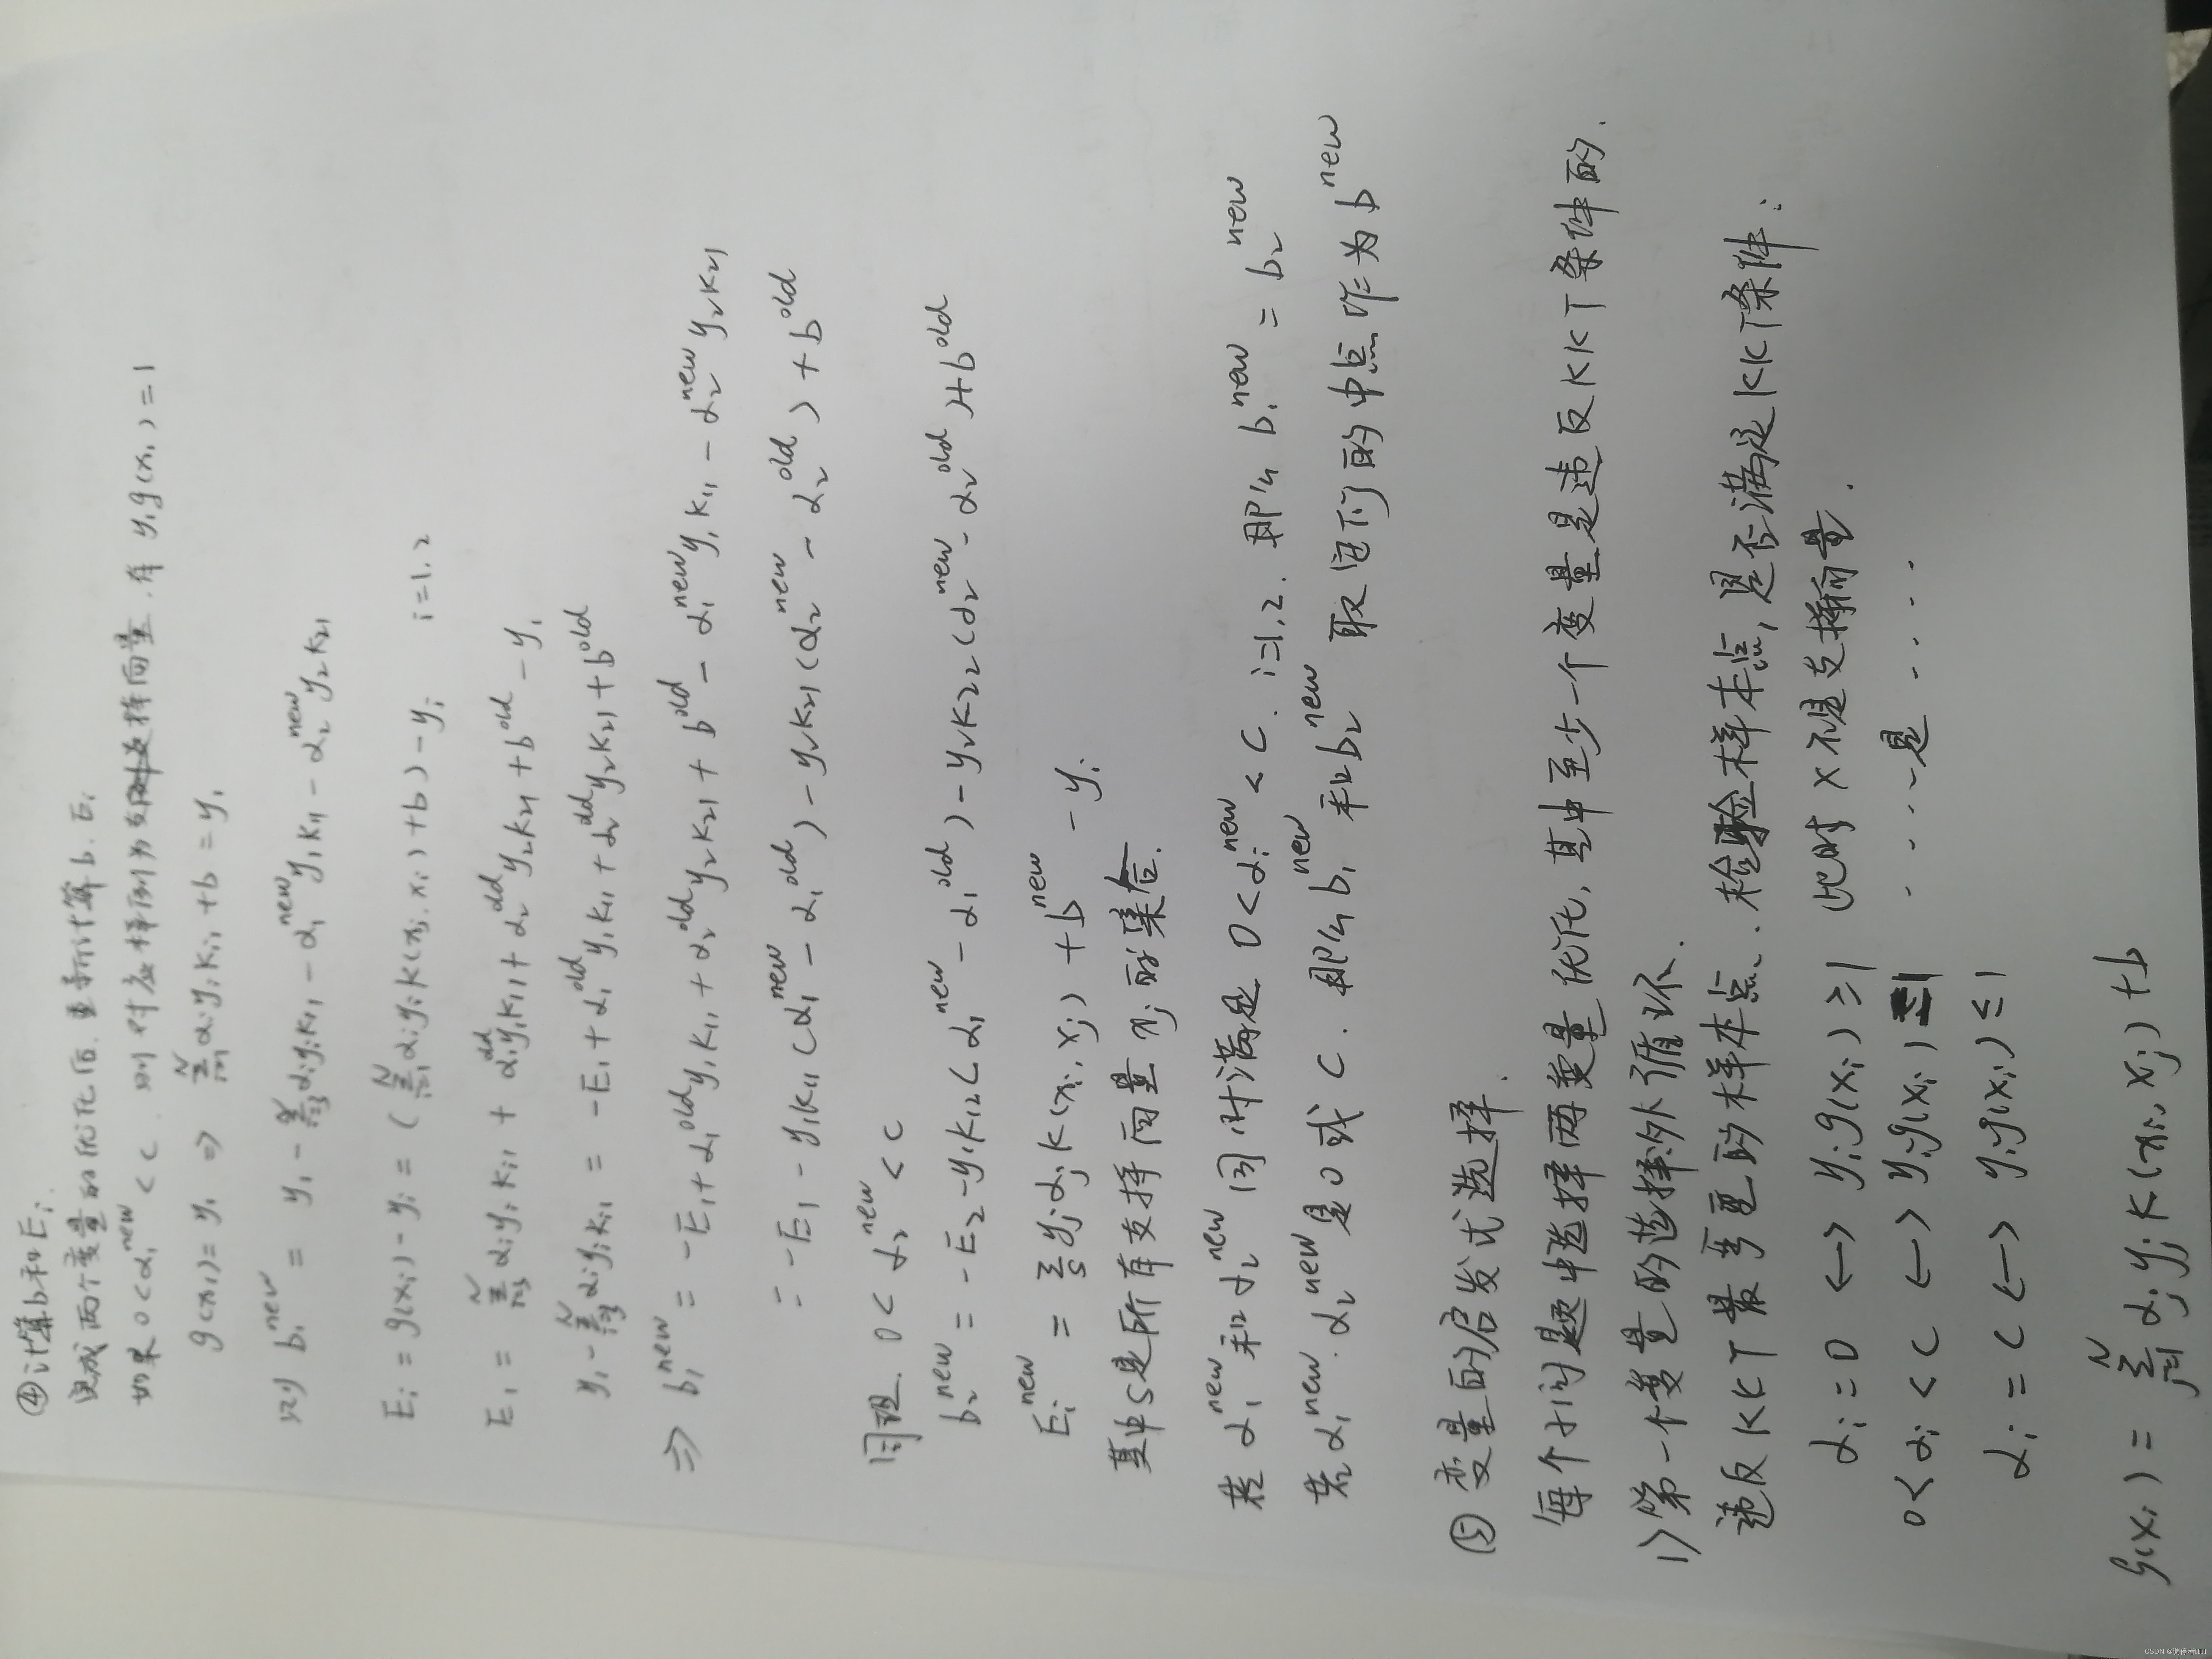 ④计算b和Ei
完成两个变量的优化后.重新计算b.Ei
如果0<α₁^new<C.则对应样例为支持向量.有 y₁g(x₁)=1
g(x₁)=y₁ ⇒ Σ_{i=1}^N αᵢyᵢKᵢ₁+b=y₁
则 b₁^new = y₁-Σ_{i=3}^N αᵢyᵢKᵢ₁-α₁^new y₁K₁₁-α₂^new y₂K₂₁
Eᵢ=g(xᵢ)-yᵢ=(Σ_{j=1}^N αⱼyⱼK(xⱼ,xᵢ)+b)-yᵢ i=1,2
E₁=Σ_{i=3}^N αᵢyᵢKᵢ₁+α₁^old y₁K₁₁+α₂^old y₂K₂₁+b^old-y₁
y₁-Σ_{i=3}^N αᵢyᵢKᵢ₁=-E₁+α₁^old y₁K₁₁+α₂^old y₂K₂₁+b^old
⇒ b₁^new=-E₁+α₁^old y₁K₁₁+α₂^old y₂K₂₁+b^old-α₁^new y₁K₁₁-α₂^new y₂K₂₁
=-E₁-y₁K₁₁(α₁^new-α₁^old)-y₂K₂₁(α₂^new-α₂^old)+b^old
同理.0<α₂^new<C
b₂^new=-E₂-y₁K₁₂(α₁^new-α₁^old)-y₂K₂₂(α₂^new-α₂^old)+b^old
Eᵢ^new=Σ_S yⱼαⱼK(xᵢ,xⱼ)+b^new-yᵢ
其中S是所有支持向量xⱼ的集合.
若α₁^new和α₂^new同时满足0<αᵢ^new<C.i=1,2.那么b₁^new=b₂^new
若α₁^new.α₂^new是0或C.那么b₁^new和b₂^new取它们的中点作为b^new
⑤变量的启发式选择.
每个子问题中选择两变量优化,其中至少一个变量是违反KKT条件的.
1)第一个变量的选择外循环.
违反KKT最严重的样本点.检验样本点,是否满足KKT条件:
αᵢ=0 ⟷ yᵢg(xᵢ)≥1 此时x不是支持向量.
0<αᵢ<C ⟷ yᵢg(xᵢ)=1 ....是....
αᵢ=C ⟷ yᵢg(xᵢ)≤1
g(xᵢ)=Σ_{j=1}^N αⱼyⱼK(xᵢ,xⱼ)+b